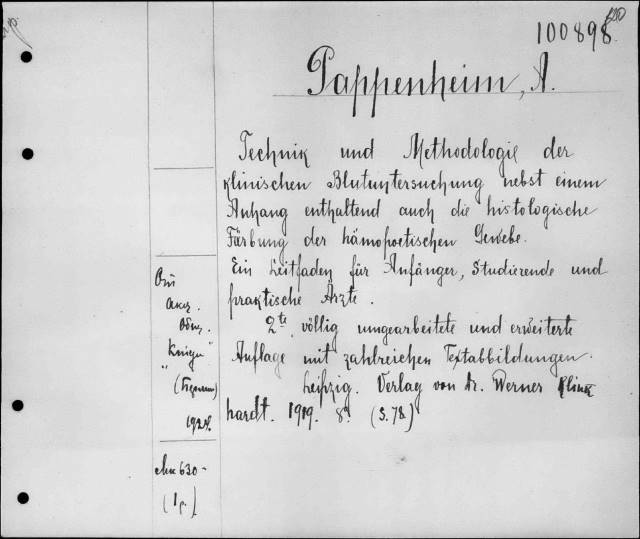 100898
Pappenheim, A.
Technik und Methodologie der
klinischen Blutuntersuchung nebst einem
Anhang enthaltend auch die histologische
Färbung der hämopoetischen Gewebe.
Ein Leitfaden für Anfänger, Studierende und
praktische Ärzte.
2te, völlig umgearbeitete und erweiterte
Auflage mit zahlreichen Textabbildungen.
Leipzig. Verlag von Dr. Werner Klink
hardt. 1919. 8º. (S. 78)
От
Акц.
Общ.
"Книга"
(Берлин)
630-
(1 р.)